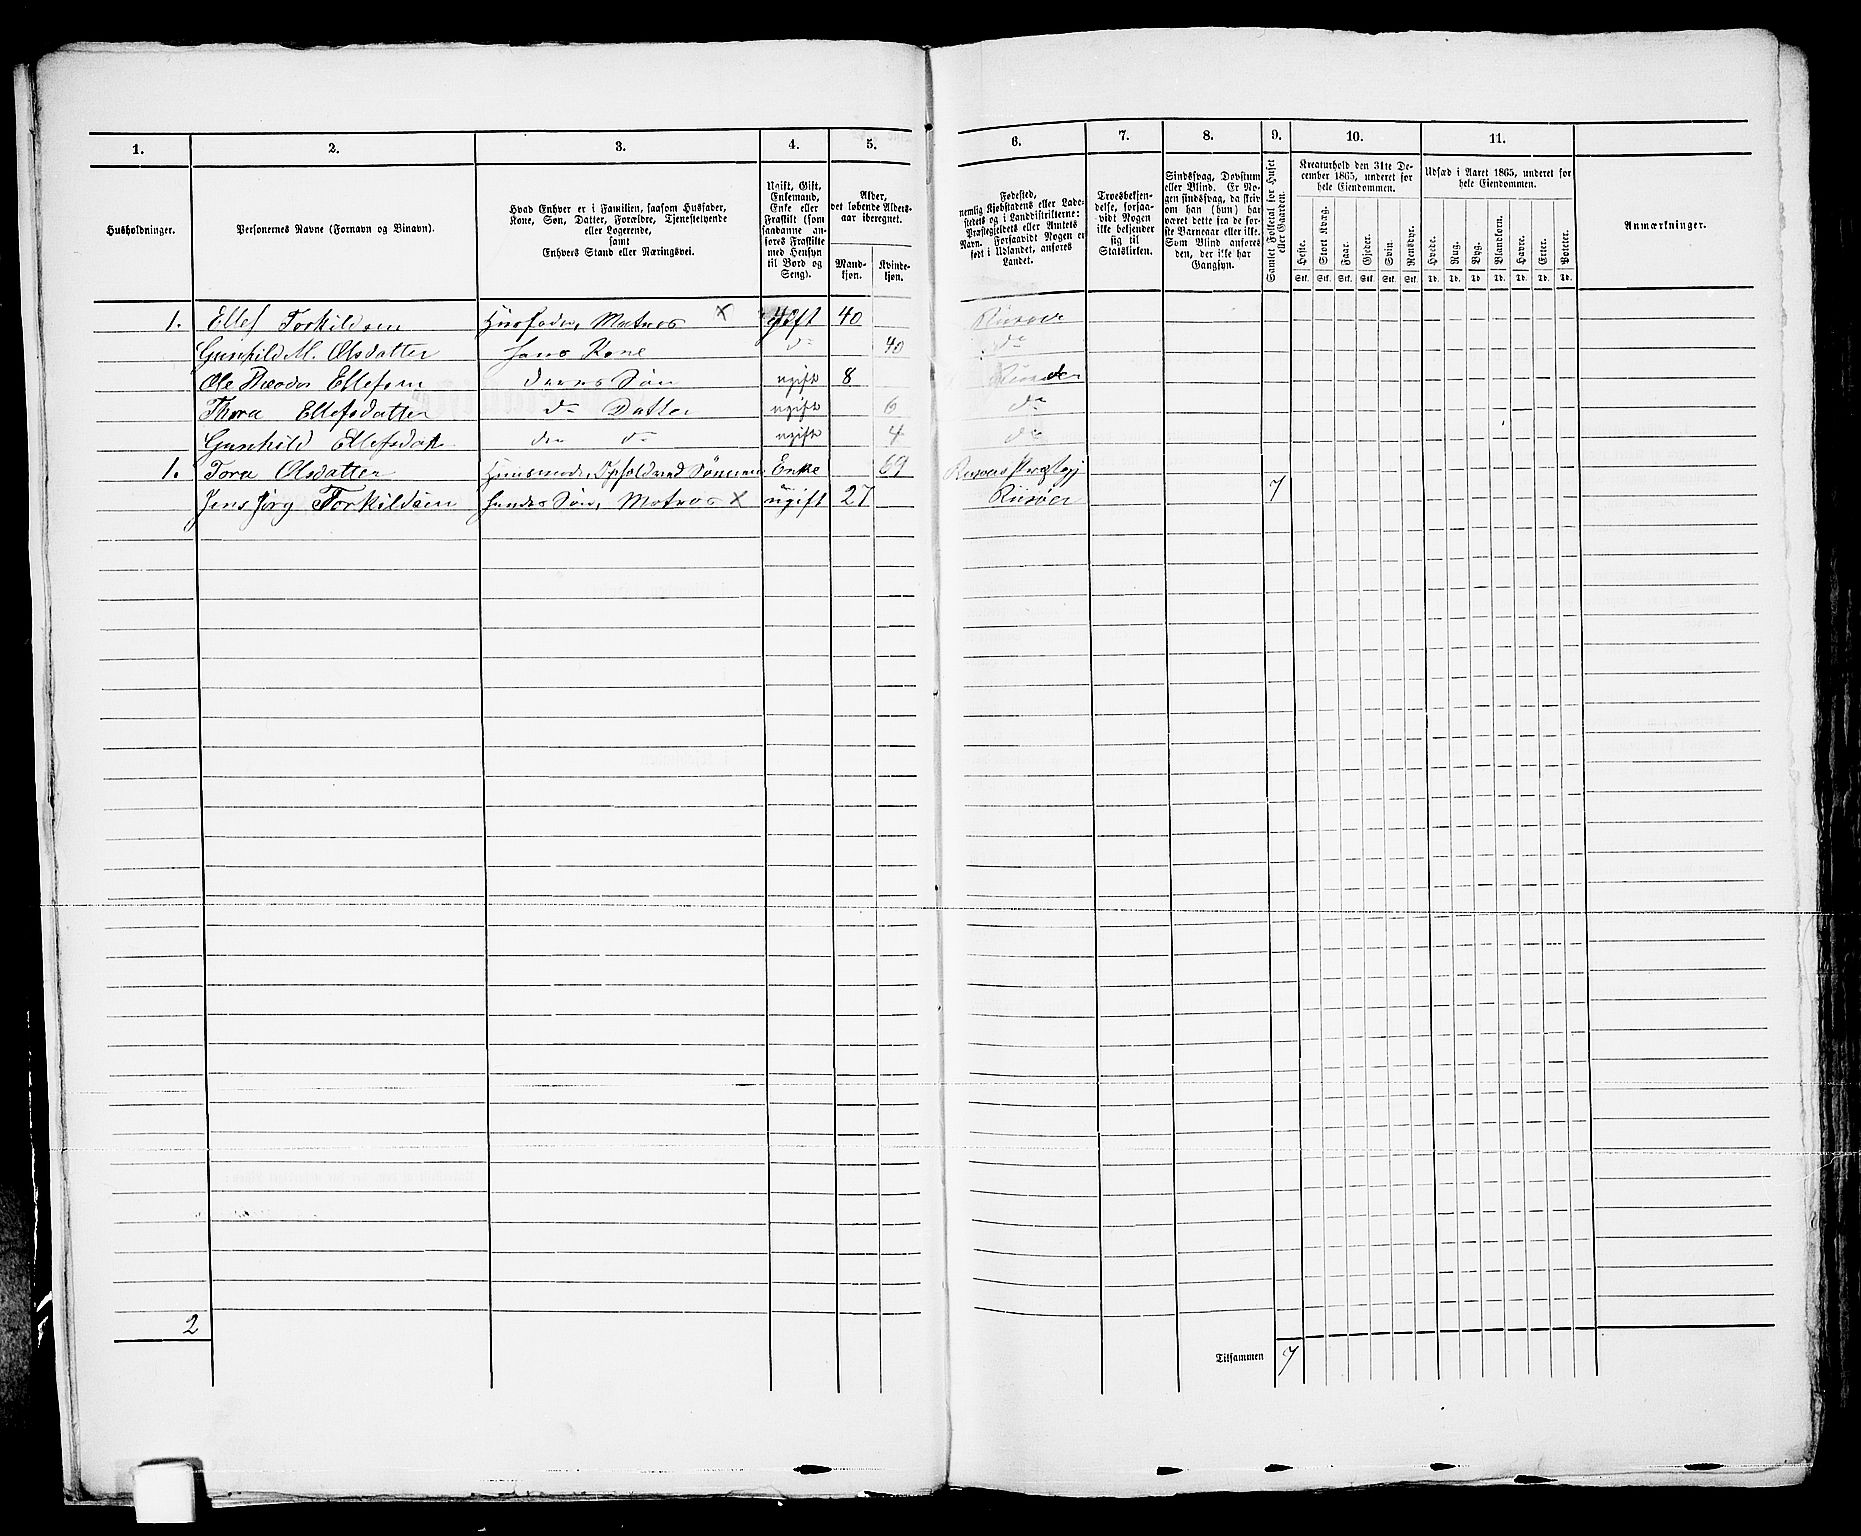 1. 2. 3. 4. 5. 6. 7. 8. 9. 10. 11.
Husholdninger.
Personernes Navne (Fornavn og Binavn).
Hvad Enhver er i Familien, saasom Husfader,
Kone, Søn, Datter, Forældre, Tjenestetyende
eller Logerende,
samt
Enhvers Stand eller Næringsvei.
Ugift, Gift,
Enkemand,
Enke eller
Fraskilt (som
saadanne an-
føres Fraskilte
med Hensyn
til Bord og
Seng).
Alder,
det løbende Alders-
aar iberegnet.
Mand-
kjøn.
Kvinde-
kjøn.
Fødested,
nemlig Kjøbstadens eller Lade-
stedets og i Landdistrikterne:
Præstegjeldets eller Amtets
Navn. Forsaavidt Nogen er
født i Udlandet, anføres
Landet.
Troesbekjen-
delse, forsaa-
vidt Nogen
ikke bekjender
sig til
Statskirken.
Sindssvag, Døvstum
eller Blind. Er No-
gen sindssvag, da skriv
om han (hun) har
været dette fra de for-
ste Barneaar eller ikke.
Som Blind anføres
den, der ikke har
Gangsyn.
Samlet Folketal for Huset
eller Gaarden.
Kreaturhold den 31te De-
cember 1865, underet for
hele Eiendommen.
Heste. Stort Kvæg. Faar. Gjeder. Svin. Rensdyr.
Stk. Stk. Stk. Stk. Stk. Stk.
Udsæd i Aaret 1865, underet for
hele Eiendommen.
Hvede. Rug. Byg. Blandkorn. Havre. Erter. Poteter.
Td. Td. Td. Td. Td. Td. Td.
Anmærkninger.
1. Ellef Torkildsen Husfader, Matros x gift 40
Gunhild M. Olsdatter hans Kone do 40 do
Ole Ellefsen deres Søn ugift 8
Thora Ellefsdatter do Datter ugift 6 do
Gunhild Ellefsdatt do do ugift 4 do
1. Tora Olsdatter Enke 69
Jens Jørg Torkildsen hendes Søn, Matros x ugift 27 Riisøer 7
2
Tilsammen 7